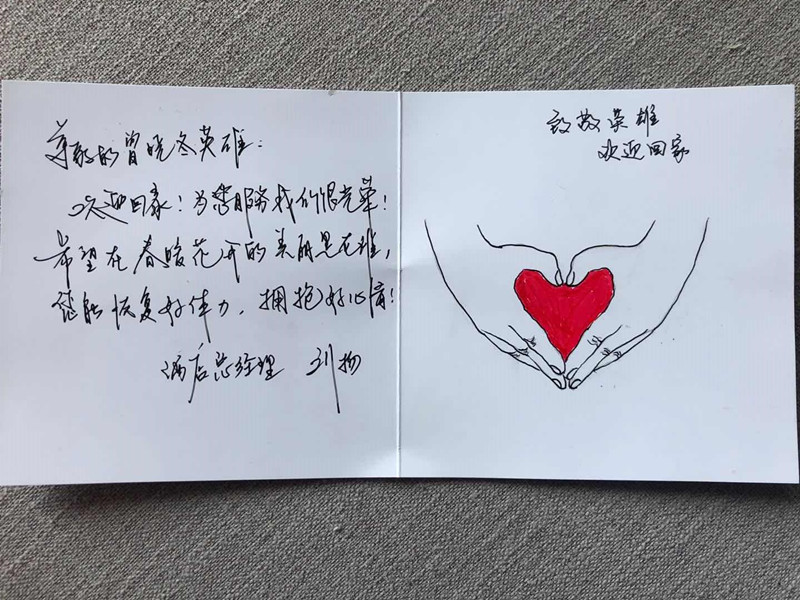 尊敬的曾晓冬英雄：
欢迎回家！为您服务我们很光荣！
希望在春暖花开的美丽恩龙滩，
您能恢复好体力，拥抱好心情！
酒店总经理 刘扬
致敬英雄
欢迎回家